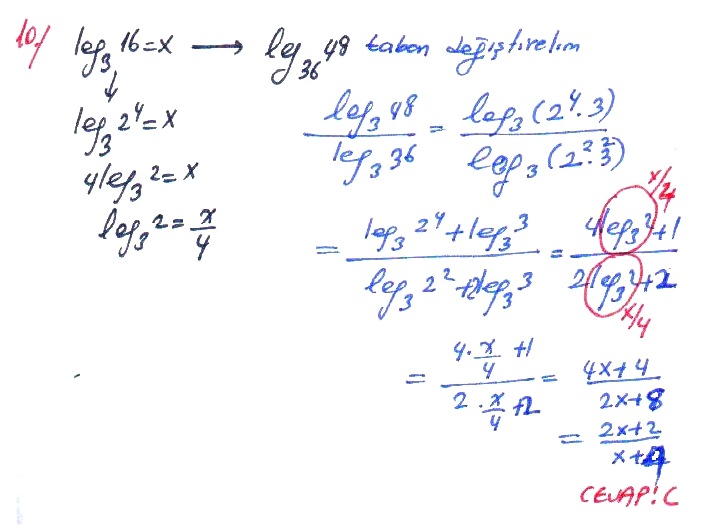 10/ log₃16=x → log₃₆48 taban değiştirelim
↓
log₃2⁴=x
4log₃2=x
log₃2=x/4
log₃48/log₃36 = log₃(2⁴.3)/log₃(2².3²)
= (log₃2⁴+log₃3)/(log₃2²+2log₃3) = (4log₃2+1)/(2log₃2+2)
x/4
x/4
= (4.x/4+1)/(2.x/4+2) = (4x+4)/(2x+8)
= (2x+2)/(x+4)
CEVAP: C